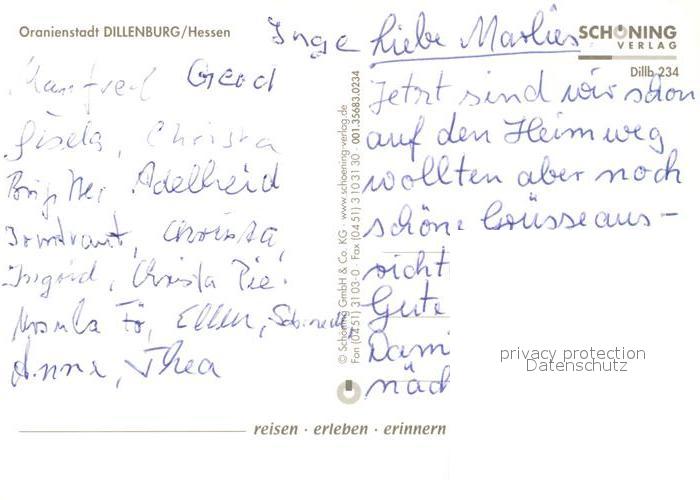 Oranienstadt DILLENBURG/Hessen
SCHÖNING
VERLAG
Dillb 234
Inge
Manfred Gerd
Gisela, Christa
Brigitte, Adelheid
Irmtraut, Christa,
Ingrid, Christa Pie.
Ursula Fö, Ellen,
Anna, Thea
© Schöning GmbH & Co. KG · www.schoening-verlag.de
Fon (04 51) 31 03-0 · Fax (04 51) 3 10 31 30 · 001.35683.0234
Liebe Marlies
Jetzt sind wir schon
auf den Heimweg
wollten aber noch
schöne Grüsse aus-
richt
Gute
Dami
näch
privacy protection
Datenschutz
reisen · erleben · erinnern